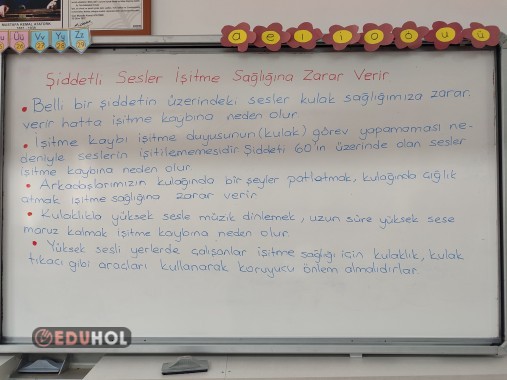 MUSTAFA KEMAL ATATÜRK
Uu Üü Vv Yy Zz
25 26 27 28 29
a e ı i o ö u ü
Şiddetli Sesler İşitme Sağlığına Zarar Verir
• Belli bir şiddetin üzerindeki sesler kulak sağlığımıza zarar
verir hatta işitme kaybına neden olur.
• İşitme kaybı işitme duyusunun (kulak) görev yapamaması ne-
deniyle seslerin işitilememesidir. Şiddeti 60'ın üzerinde olan sesler
işitme kaybına neden olur.
• Arkadaşlarımızın kulağında bir şeyler patlatmak, kulağında çığlık
atmak işitme sağlığına zarar verir.
• Kulaklıkla yüksek sesle müzik dinlemek, uzun süre yüksek sese
maruz kalmak işitme kaybına neden olur.
• Yüksek sesli yerlerde çalışanlar işitme sağlığı için kulaklık, kulak
tıkacı gibi araçları kullanarak koruyucu önlem almalıdırlar.
EDUHOL